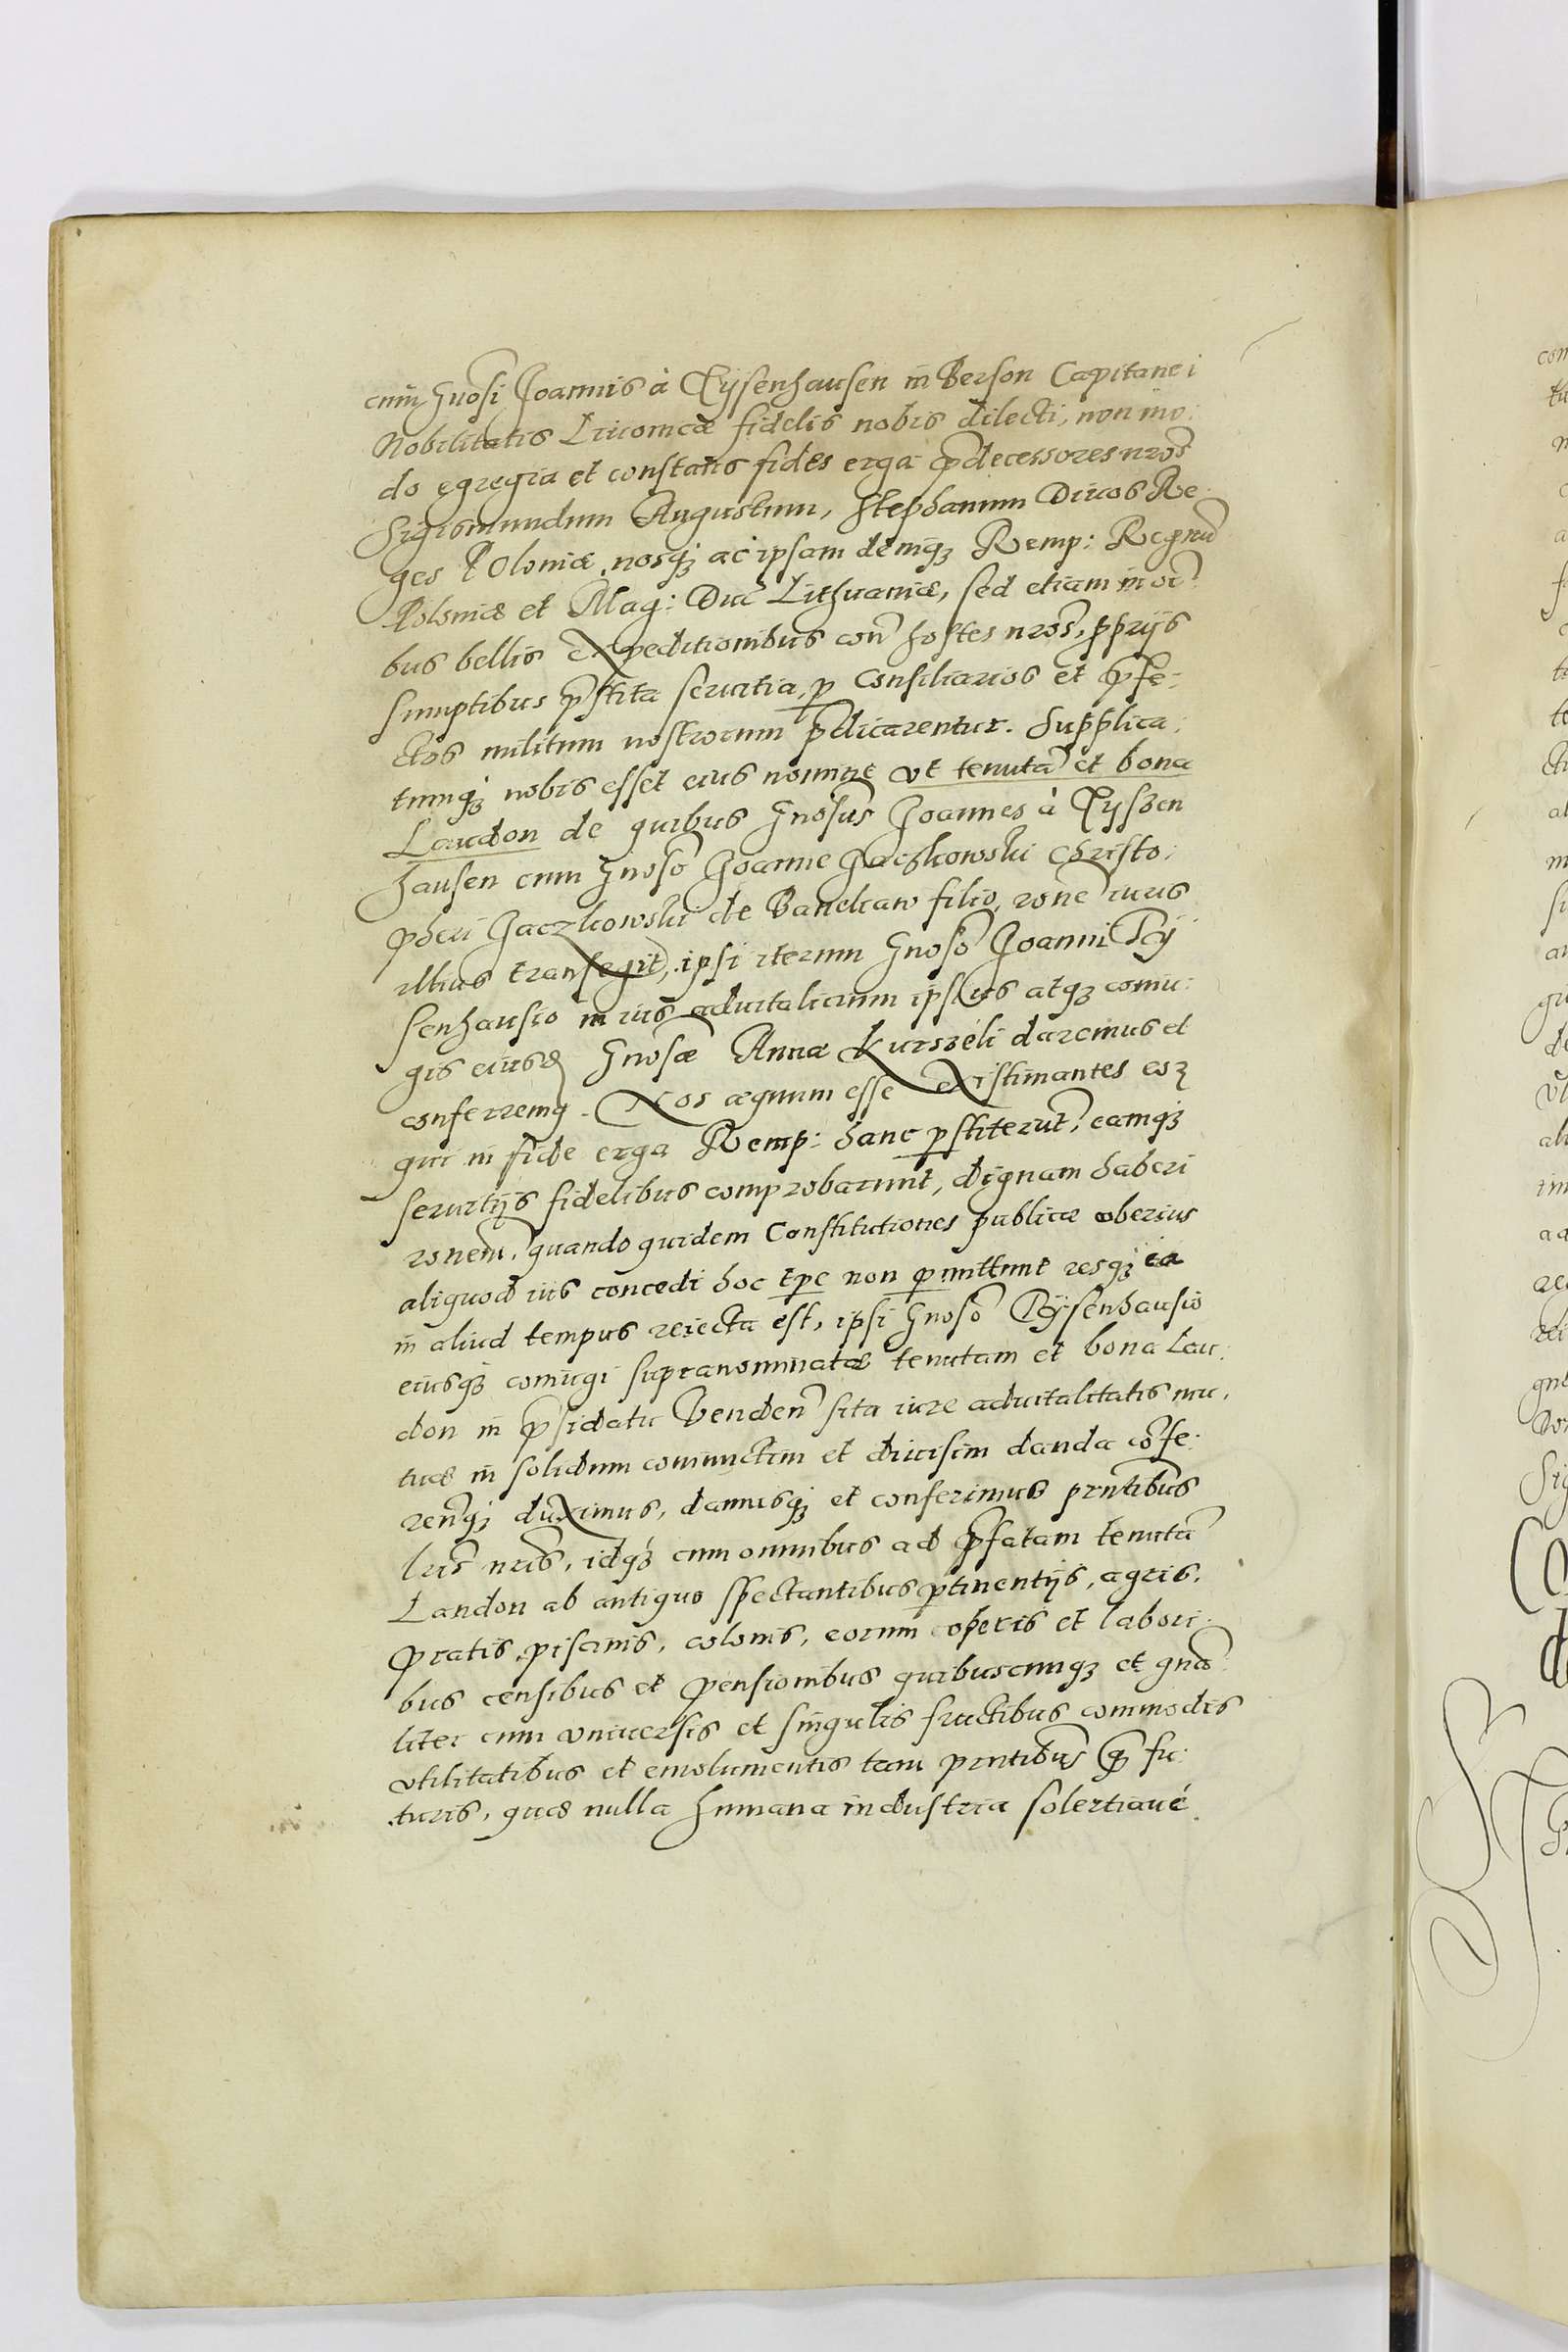 cum Gnosi Joannis à Tysenhausen in Berson Capitanei
Nobilitatis Liuonicæ fidelis nobis dilecti, non mo:
do egregia et constans fides erga prdecessores nros
Sigismundum Augustum, Stephanum Diuos Re
ges Poloniæ, nosq; ac ipsam deniq; Remp: Regnu
Poloniæ et Mag: Duc Lithuaniæ, sed etiam in oi
bus bellis Expeditionibus con hostes nros, pprijs
sumptibus prstita seruitia, p Consiliarios et prfe:
ctos militum nostrorum prdicarentur. Supplica:
tumq; nobis esset eius nomine vt tenuta et bona
Laudon de quibus Gnosus Joannes à Tyszen
hausen cum Gnoso Joanne Jaczkowski Christo:
pheri Jaczkowski de Banckaw filio, rone iuris
illius transegit, ipsi iterum Gnoso Joanni Ty
senhausio in ius aduitalicium ipsius atq; coniu:
gis eiusd Gnosæ Annæ Kurszeli daremus et
conferremq. Nos æquum esse Existimantes eoz
qui in fide erga Remp: hanc pstiterut, eamq;
seruitijs fidelibus comprobarunt, dignam haberi
ronem, quando quidem Constitutiones publicæ vberius
aliquod ius concedi hoc tpe non pmittunt resq; ea
in aliud tempus reiecta est, ipsi Gnoso Tysenhausio
eiusq; coniugi supranominatæ tenutam et bona Lau:
don in prsidatu Venden sita iure aduitalitatis mu,
tuæ in solidum coniunctim et diuisim danda cofe:
renq; duximus, damusq; et conferimus prntibus
lris nris, idq; cum omnibus ad prfatam tenuta
Laudon ab antiquo spectantibus ptinentijs, agris,
pratis, piscinis, colonis, eorum operis et labori
bus censibus et pensionibus quibuscunq; et gna
liter cum vniuersis et singulis fructibus commodis
vtilitatibus et emolumentis tam prntibus q fu:
turis, quæ nulla humana industria solertiaué